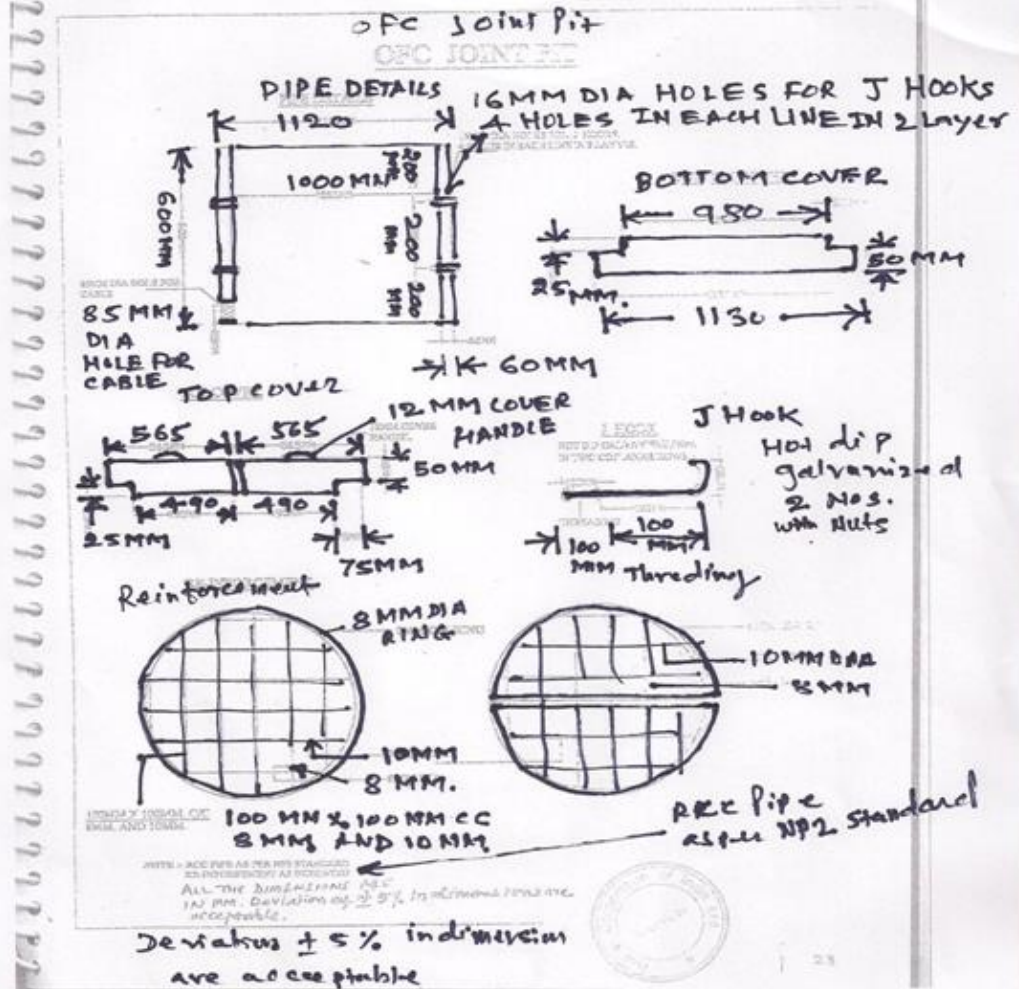 OFC Joint Pit
OFC JOINT PIT
PIPE DETAILS
1120
16MM DIA HOLES FOR J HOOKS
4 HOLES IN EACH LINE IN 2 Layer
1000 MM
200 MM
200 MM
200 MM
600MM
85 MM
DIA
HOLE FOR
CABLE
60MM
BOTTOM COVER
980
25 MM.
50 MM
1130
TOP COVER
12 MM COVER
HANDLE
565
565
50MM
490
490
25MM
75MM
J HOOK
Hot dip
galvanized
2 Nos.
with Nuts
100 MM
100 MM
Threding
Reinforcement
8 MM DIA
RING
10MM
8 MM.
100 MM X 100 MM CC
8 MM AND 10 MM
10MM DIA
8 MM
RCC Pipe
as per NP2 Standard
ALL THE DIMENSIONS ARE
IN MM. Deviation of ± 5% in dimensions are
acceptable.
Deviations ± 5% in dimension
are acceptable
23